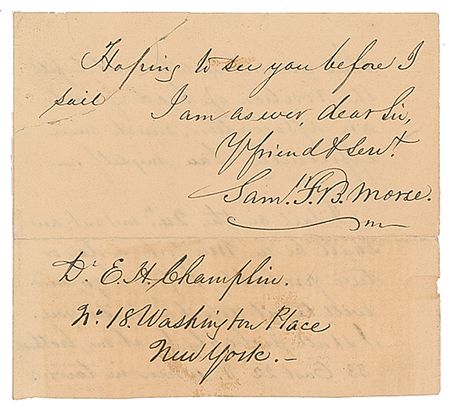 Hoping to see you before I
sail I am as ever, dear Sir,
Yr friend & Servt.
Saml. F. B. Morse.
Dr E. H. Champlin.
No 18. Washington Place
New York. –